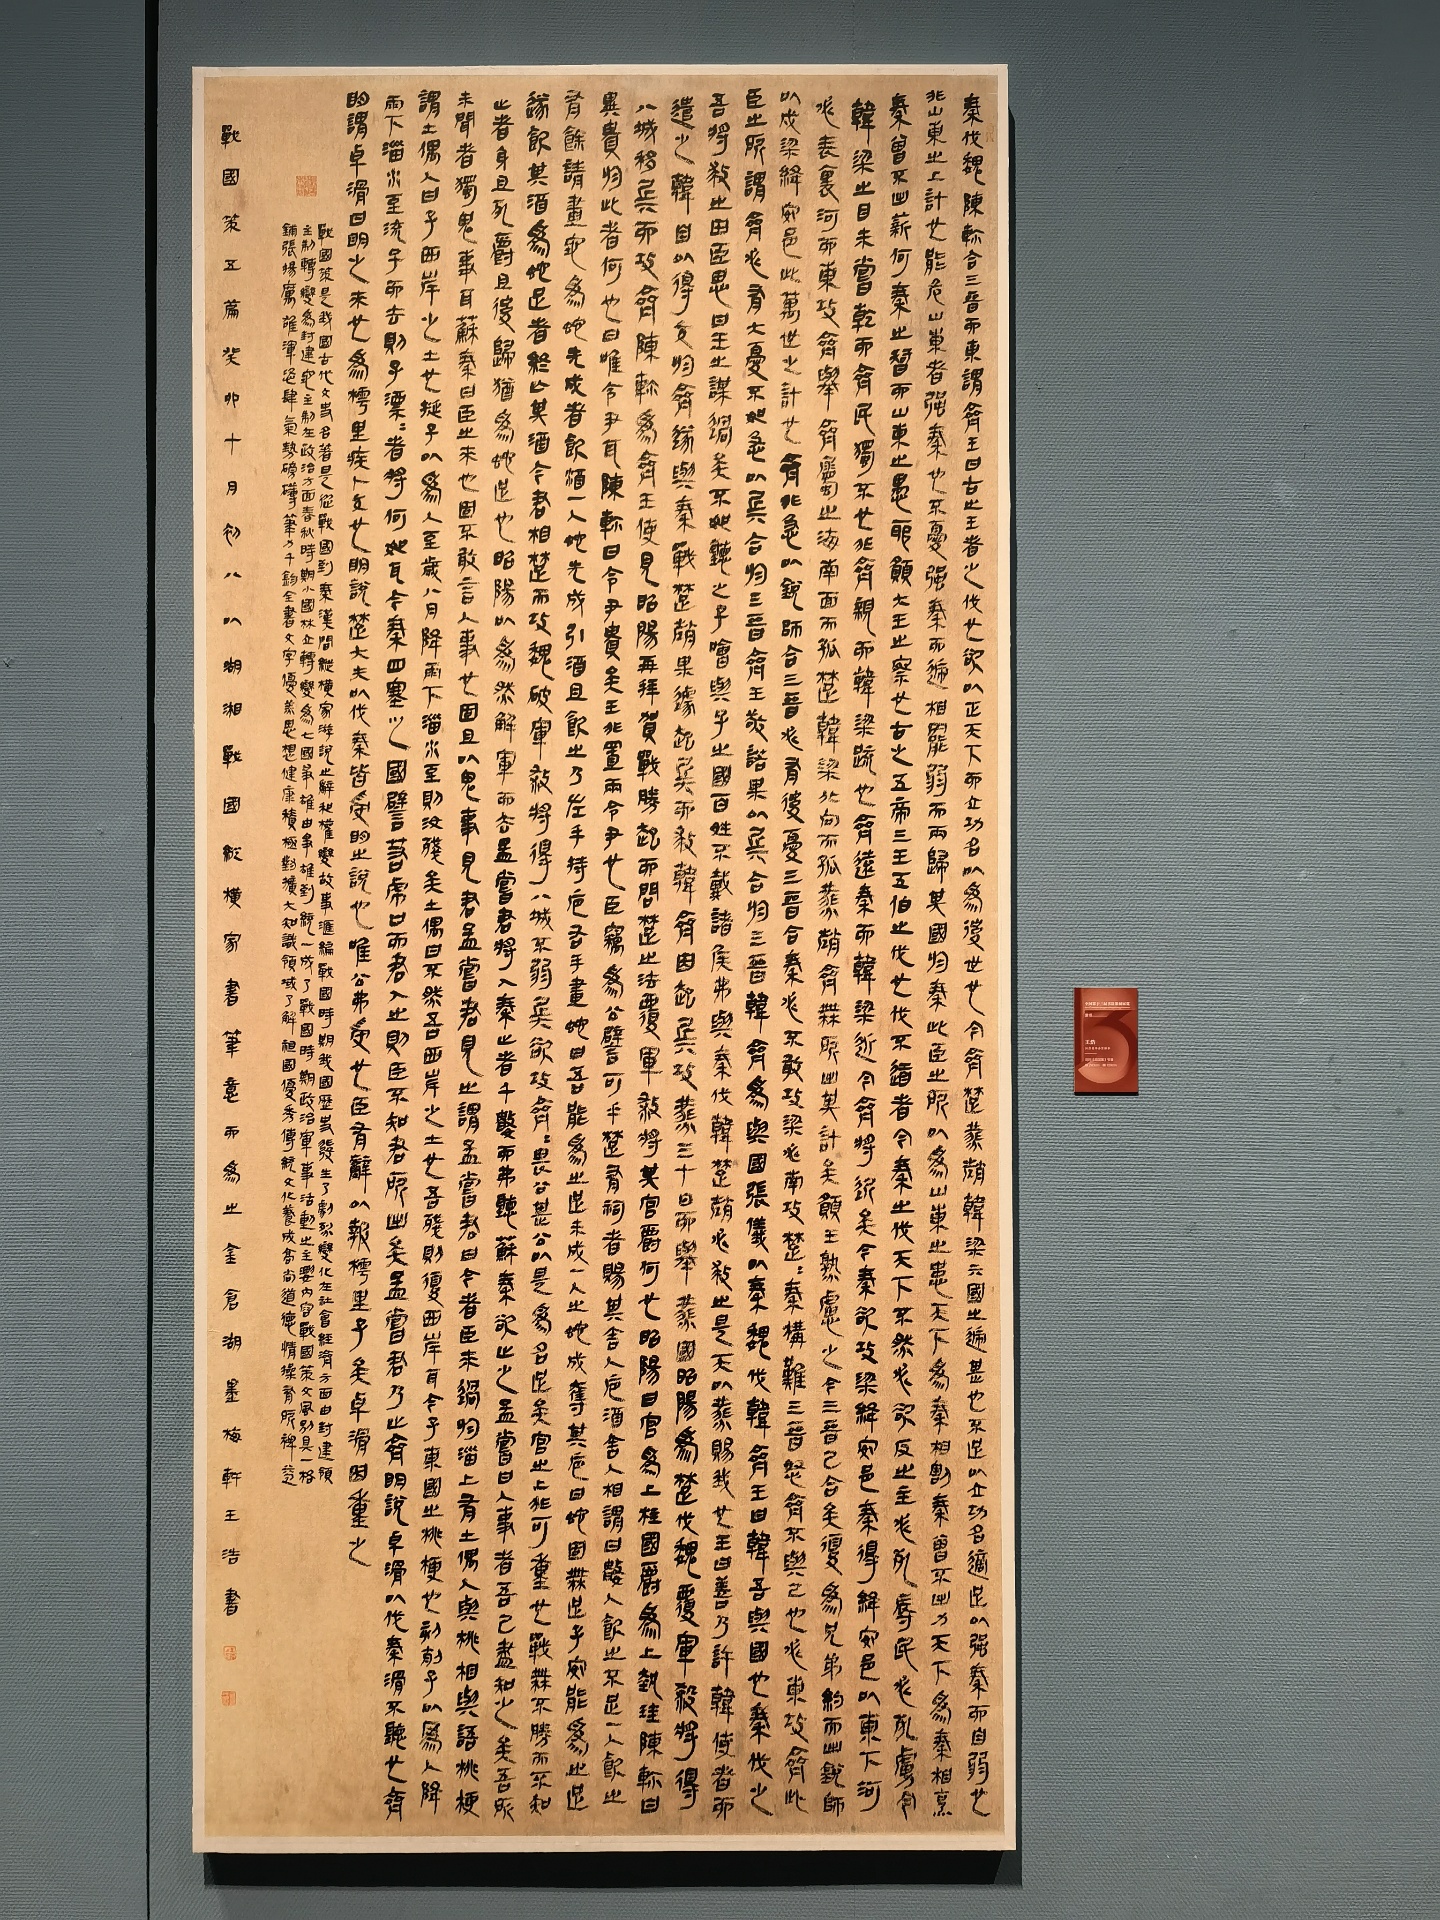 秦伐魏陳軫合三晉而東謂齊王曰古之王者之伐也欲以正天下而立功名以為後世也今齊楚燕趙韓梁六國之遞甚也不足以立功名適足以強秦而自弱也
非山東之上計也能危山東者強秦也不憂強秦而遞相罷弱而兩歸其國於秦此臣之所以為山東之患天下為秦相割秦曾不出力天下為秦相烹
秦曾不出薪何秦之智而山東之愚耶願大王之察也古之五帝三王五伯之伐也伐不道者今秦之伐天下不然必欲反之主必死辱民必死虜今
韓梁之目未嘗乾而齊民獨不也非齊親而韓梁疏也齊遠秦而韓梁近今齊將近矣今秦欲攻梁絳安邑秦得絳安邑以東下河
必表裏河而東攻齊舉齊屬之海南面而孤楚韓梁北向而孤燕趙齊無所出其計矣願王熟慮之今三晉已合矣復為兄弟約而出銳師
以戍梁絳安邑此萬世之計也齊非急以銳師合三晉必有後憂三晉合秦必不敢攻梁必南攻楚:秦構難三晉怒齊不與己也必東攻齊此
臣之所謂齊必有大憂不如急以兵合於三晉齊王敬諾果以兵合於三晉韓齊為與國張儀以秦魏伐韓齊王曰韓吾與國也秦伐之
吾將救之田臣思曰王之謀過矣不如聽之子噲與子之國百姓不戴諸侯弗與秦伐韓楚趙必救之是天以燕賜我也王曰善乃許韓使者而
遣之韓自以得交於齊遂與秦戰楚趙果遽起兵而救韓齊因起兵攻燕三十日而舉燕國昭陽為楚伐魏覆軍殺將得
八城移兵而攻齊陳軫為齊王使見昭陽再拜賀戰勝起而問楚之法覆軍殺將其官爵何也昭陽曰官為上柱國爵為上執珪陳軫曰
異貴於此者何也曰唯令尹耳陳軫曰令尹貴矣王非置兩令尹也臣竊為公譬可乎楚有祠者賜其舍人卮酒舍人相謂曰數人飲之不足一人飲之
有餘請畫地為蛇先成者飲酒一人蛇先成引酒且飲之乃左手持卮右手畫蛇曰吾能為之足未成一人之蛇成奪其卮曰蛇固無足子安能為之足
遂飲其酒為蛇足者終亡其酒今君相楚而攻魏破軍殺將得八城不弱兵欲攻齊:畏公甚公以是為名足矣官之上非可重也戰無不勝而不知
止者身且死爵且後歸猶為蛇足也昭陽以為然解軍而去孟嘗君將入秦止者千數而弗聽蘇秦欲止之孟嘗曰人事者吾已盡知之矣吾所
未聞者獨鬼事耳蘇秦曰臣之來也固不敢言人事也固且以鬼事見君孟嘗君見之謂孟嘗君曰今者臣來過於淄上有土偶人與桃相與語桃梗
謂土偶人曰子西岸之土也挻子以為人至歲八月降雨下淄水至則汝殘矣土偶曰不然吾西岸之土也吾殘則復西岸耳今子東國之桃梗也刻削子以為人降
雨下淄水至流子而去則子漂:者將何如耳今秦四塞之國譬若虎口而君入之則臣不知君所出矣孟嘗君乃止齊明說卓滑以伐秦滑不聽也齊
明謂卓滑曰明之來也為樗里疾卜交也明說楚大夫以伐秦皆受明之說也唯公弗受也臣有辭以報樗里子矣卓滑因重之
戰國策是我國古代文史名著是從戰國到秦漢間縱橫家游說之辭和權變故事滙編戰國時期我國歷史發生了劇烈變化在社會經濟方面由封建領
主制轉變為封建地主制在政治方面春秋時期小國林立轉變為七國爭雄由爭雄到統一成了戰國時期政治軍事活動之主要內容戰國策文風別具一格
鋪張揚厲雄渾恣肆氣勢磅礴筆力千鈞全書文字優美思想健康積極對擴大知識領域了解祖國優秀傳統文化養成高尚道德情操有所裨益
戰國策五篇癸卯十月初八以湖湘戰國縱橫家書筆意而為之金倉湖墨梅軒王浩書